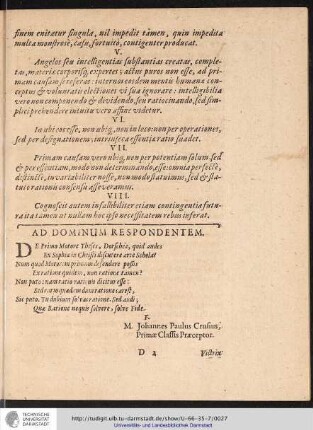 finem enitatur singula, nil impedit tamen, quin impedita
multa monstrosè, casu, fortuitò, contigenter producat.
V.
Angelos seu intelligentias substantias creatas, comple-
tas, materiæ corporisq; expertes; actus puros non esse, ad pri-
mam causam si referas: internos eosdem mentis humanæ con-
ceptus & voluntatis electiones vi sua ignorare: intelligibilia
verò non componendo & dividendo, seu ratiocinando, sed sim-
plici prehendere intuitu vero assine videtur.
VI.
In ubi eos esse, non ubiq;, non in loco: non per operationes,
sed per designationem, intrinseca essentiæ ratio suadet.
VII.
Primam causam verò ubiq;, non per potentiam solum sed
& per essentiam, modo non determinando, esse: omnia perfectè,
distinctè, invariabiliter nosse, non modo statuimus, sed & sta-
tui è rationis consensu asseveramus.
VIII.
Cognoscit autem infallibiliter etiam contingentia futu-
ra: ita tamen ut nullam hoc ipso necessitatem rebus inferat.
AD DOMINUM RESPONDENTEM.
DE Primo Motore Theses, Dorschêe, quid audes
Ex Sophia in Christi discutere arce Scholæ?
Num quod Motorem primum defendere possis
Ex ratione quidem, non ratione tamen?
Non puto: nam ratio rationis dicitur esse:
Est etiam quædam data ratione carêst,
Sic puto. Tu dubium solvas ratione. Sed audi,
Quæ Ratione nequis solvere, solve Fide.
F.
M. Johannes Paulus Crusius,
Primæ Classis Præceptor.
D 2
Victrix
TECHNISCHE
UNIVERSITÄT
DARMSTADT
http://tudigit.ulb.tu-darmstadt.de/show/U-66-35-7/0027
Universitäts- und Landesbibliothek Darmstadt